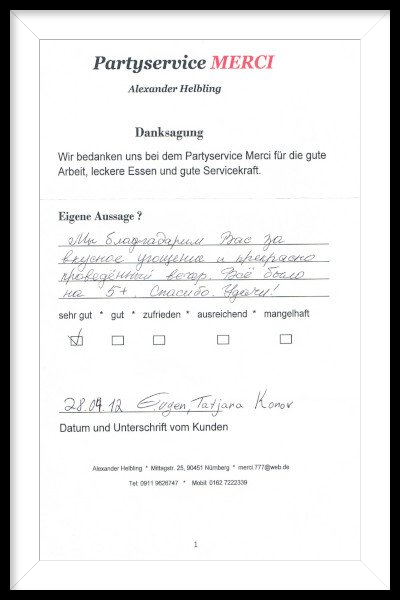 Partyservice MERCI
Alexander Helbling
Danksagung
Wir bedanken uns bei dem Partyservice Merci für die gute
Arbeit, leckere Essen und gute Servicekraft.
Eigene Aussage ?
Мы благадарим Вас за
вкусное угощение и прекрасно
проведённый вечер. Всё было
на 5+. Спасибо. Удачи!
sehr gut * gut * zufrieden * ausreichend * mangelhaft
28.04.12 Eugen, Tatjana Konov
Datum und Unterschrift vom Kunden
Alexander Helbling * Mittagstr. 25, 90451 Nürnberg * merci.777@web.de
Tel: 0911 9626747 * Mobil: 0162 7222339
1